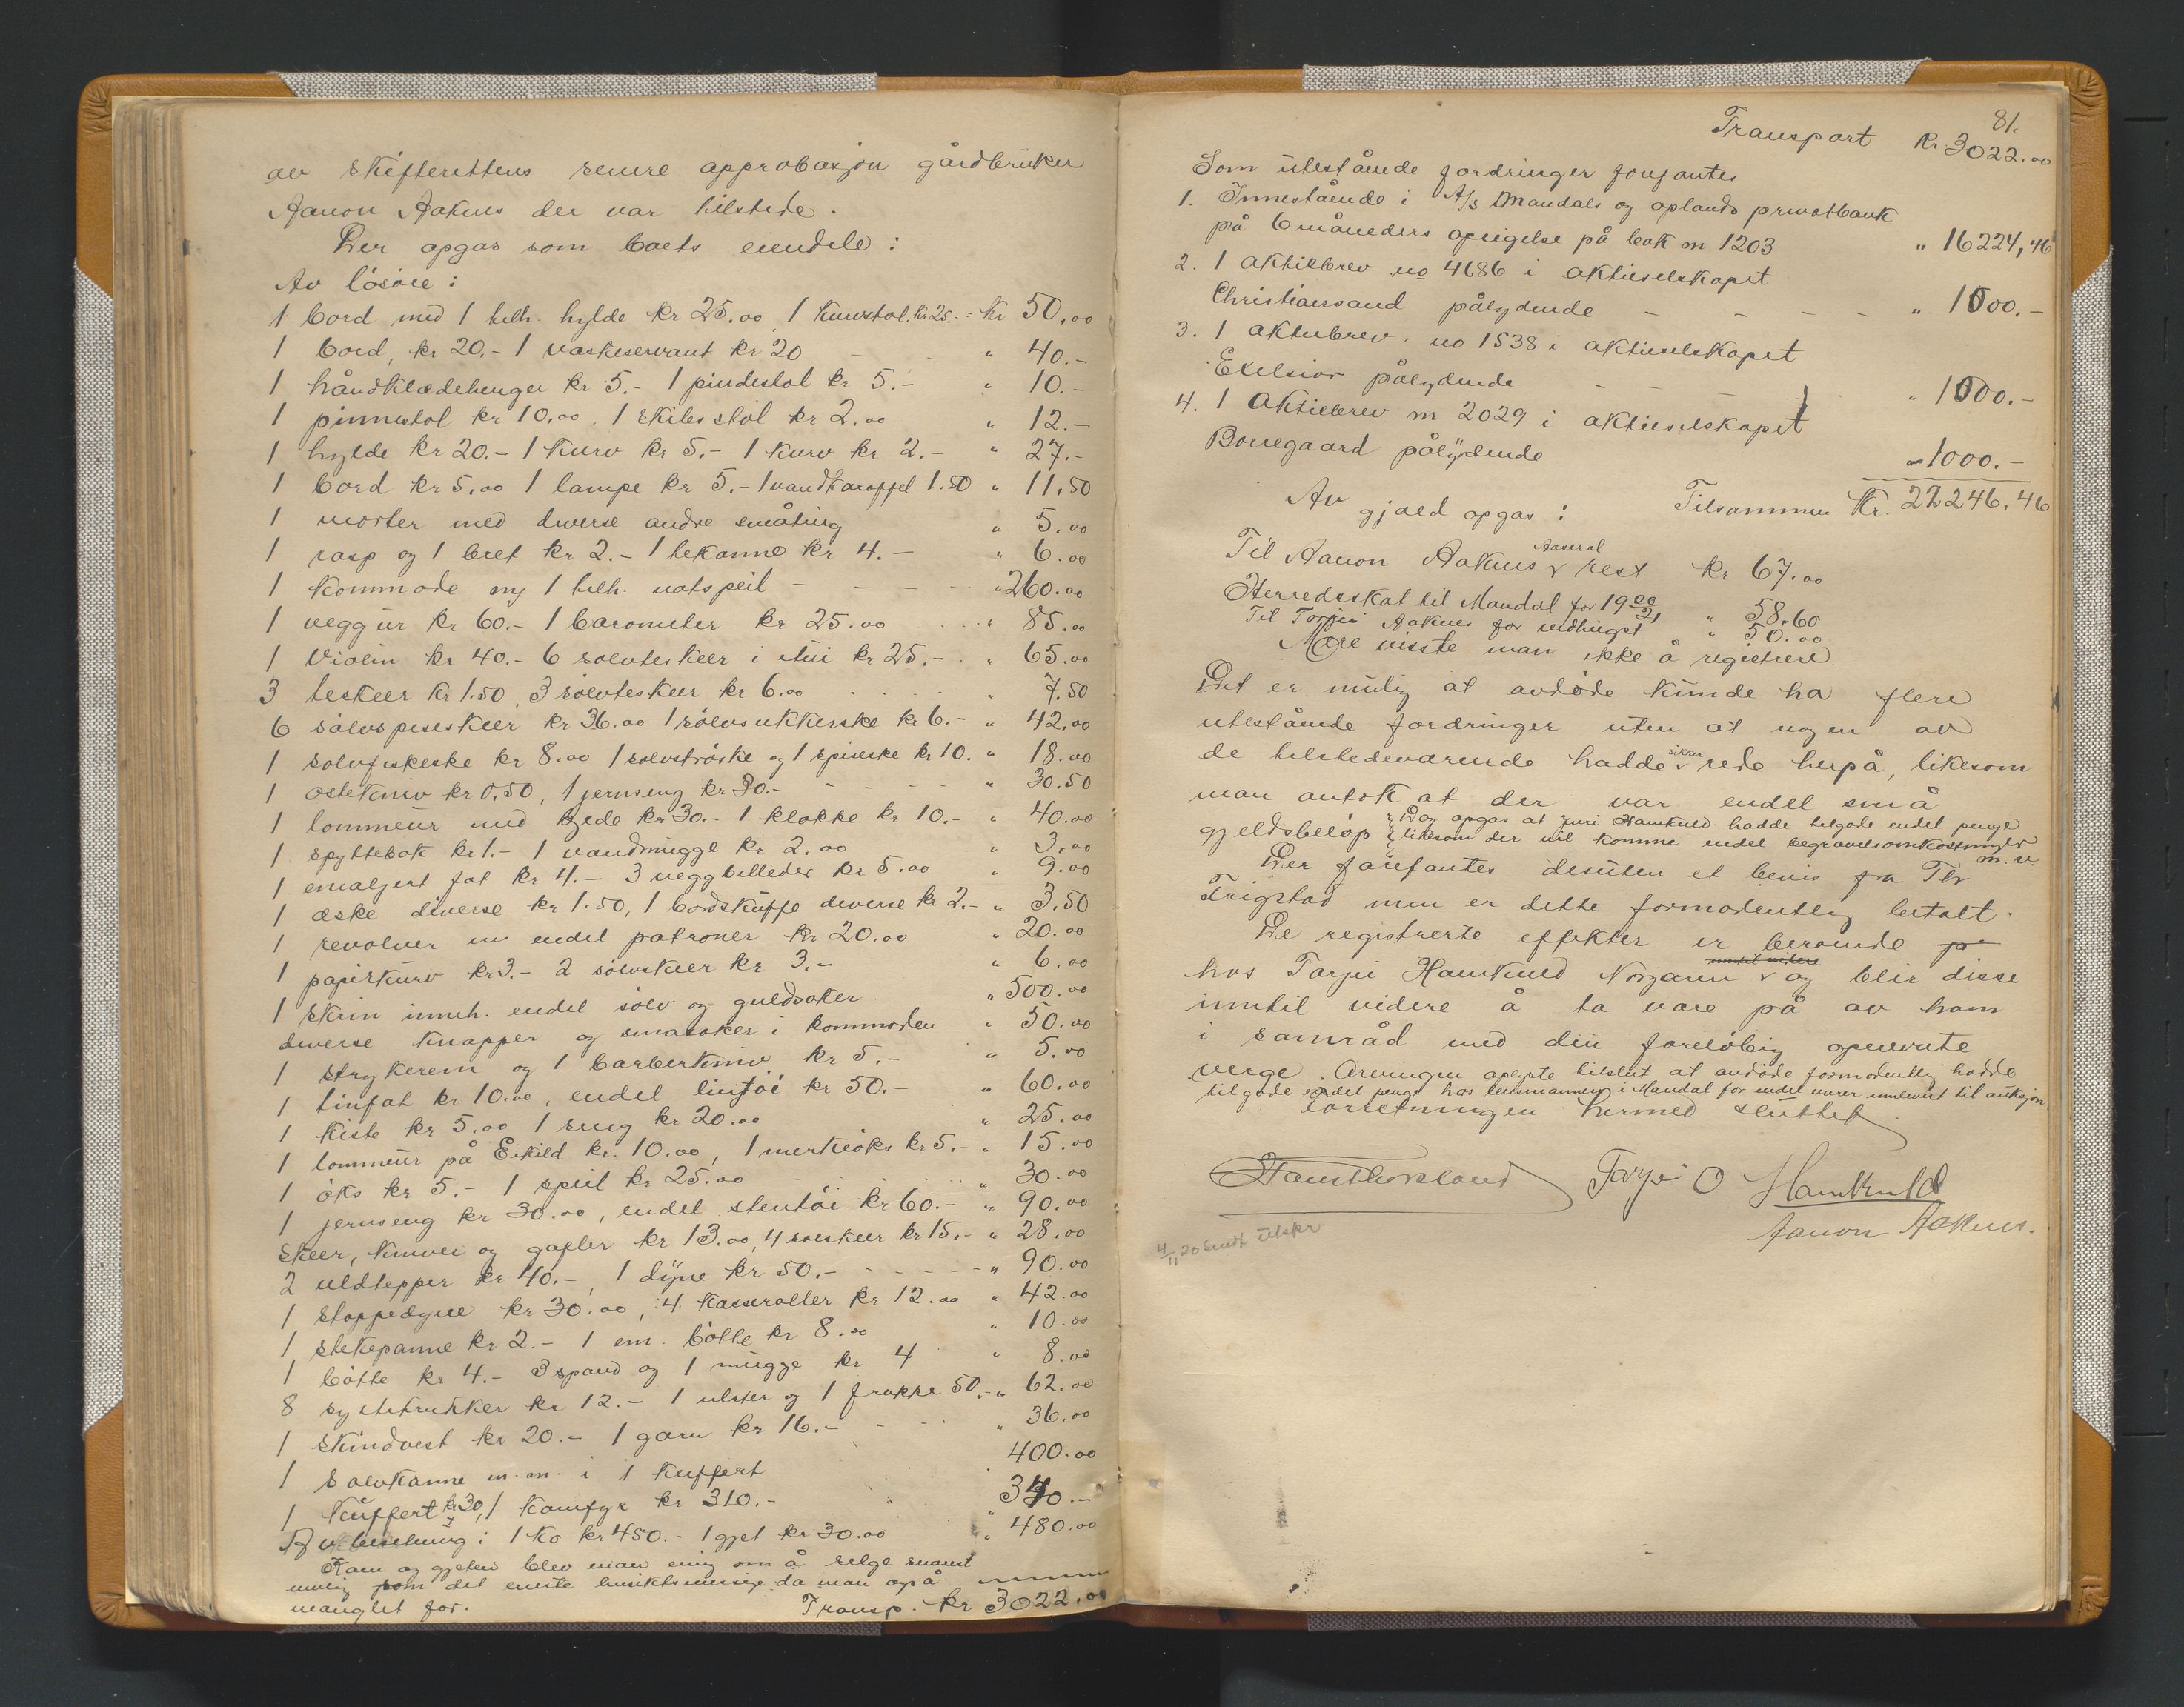 av skifterettens senere approbasjon gårdbruker
Aanon Aaknes der var tilstede.
Der opgas som boets eiendele:
Av lösöre:
1 bord med 1 tilh. hylde kr 25.00 1 kurvstol kr 25.- = kr 50.00
1 bord, kr 20.- 1 vaskeservant kr 20 - " 40.-
1 håndklædehenger kr 5.- 1 pindestol kr 5.- " 10.-
1 pinnestol kr 10,00. 1 skibsstol kr 2.00 " 12.-
1 hylde kr 20.- 1 kurv kr 5.- 1 kurv kr 2.- " 27.-
1 bord kr 5,00 1 lampe kr 5.- 1 vandkaraffel 1.50 " 11,50
1 morter med diverse andre småting " 5.00
1 rasp og 1 bret kr 2.- 1 tekanne kr 4.- " 6.00
1 kommode og 1 tilh. natspeil - - - " 260.00
1 veggur kr 60.- 1 barometer kr 25.00 " 85.00
1 Violin kr 40.- 6 sölvteskeer i etui kr 25.- " 65.00
3 teskeer kr 1.50, 3 sölvteskeer kr 6.00 " 7.50
6 sölvspiseskeer kr 36.00 1 sölvsukkerske kr 6.- " 42,00
1 sölvfiskeske kr 8.00 1 sölvströske og 1 spiseske kr 10. " 18.00
1 ostekniv kr 0,50, 1 jernseng kr 30.- " 30.50
1 lommeur med kjede kr 30.- 1 klokke kr 10.- " 40.00
1 spyttebak kr 1.- 1 vandmugge kr 2.00 " 3.00
1 emaljert fat kr 4.- 3 veggbilleder kr 5.00 " 9.00
1 æske diverse kr 1.50, 1 bordskuffe diverse kr 2.- " 3.50
1 revolver m endel patroner kr 20.00 " 20.00
1 papirkurv kr 3.- 2 sölvskeer kr 3.- " 6.00
1 skrin inneh. endel sölv og guldsaker " 500.00
diverse knapper og småsaker i kommoden " 50.00
1 strykerem og 1 barberkniv kr 5.- " 5.00
1 tinfat kr 10.00, endel lintöi kr 50.- " 60.00
1 kiste kr 5.00 1 seng kr 20.00 " 25.00
1 lommeur på Eikild kr. 10.00, 1 merkeöks kr 5.- " 15.00
1 öks kr 5.- 1 speil kr 25.00 " 30.00
1 jernseng kr 30.00, endel stentöi kr 60.- " 90.00
Skeer, kniver og gafler kr 13.00, 4 sölvskeer kr 15.- " 28.00
2 uldtepper kr 40.-, 1 dyne kr 50.- " 90.00
1 stoppedyne kr 30.00, 4 kasseroller kr 12.00 " 42.00
1 stekepanne kr 2.- 1 em. bötte kr 8.00 " 10.00
1 bötte kr 4.- 3 spand og 1 mugge kr 4 " 8.00
8 syltekrukker kr 12.- 1 ulster og 1 frakke 50.- " 62.00
1 skindvest kr 20.- 1 garn kr 16.- " 36.00
1 Sölvkanne m.m. i 1 kuffert " 400.00
1 kuffert kr 30, 1 komfyr kr 310.- 340.-
Av besetning: 1 ko kr 450.- 1 gjet kr 30.00 " 480.00
Koen og gjeten blev man enig om å selge snarest
mulig som det eneste hensiktsmessige da man også
manglet for.
Transp. kr 3022.00
81.
Transport kr. 3022.00
Som utestående fordringer forfantes
1. Innestående i A/s Mandals og oplands privatbank
på 6 måneders opsigelse på bok nr 1203 " 16224,46
2. 1 aktiebrev no 4686 i aktieselskapet
Christianssand pålydende - - - - " 1000.-
3. 1 aktiebrev. no 1538 i aktieselskapet
Exelsior pålydende - - " 1000.-
4. 1 aktiebrev nr 2029 i aktieselskapet
Borregaard pålydende " 1000.-
Tilsammen Kr. 22246.46
Av gjæld opgas:
Til Aanon Aaknes Aaseral rest kr 67.00
Herredsskat til Mandal for 1920/21 " 58.60
Til Torjus Aaknes for vedhugst " 50.00
Mere visste man ikke å registrere.
Det er mulig at avdöde kunde ha flere
utestående fordringer uten at nogen av
de tilstedeværende hadde sikker rede herpå, likesom
man antok at der var endel små
gjeldsbelöp og opgas at Juri Hamkuld hadde tilgode endel penge
likesom der vil komme endel begravelsomkostninger
m.v.
Der forefantes desuten et bevis fra Th.
Trigstad men er dette formodentlig betalt.
De registrerte effekter er beroende på
inntil videre
hos Tarjei Hamkuld Norgaren og blir disse
inntil videre å ta vare på av ham
i samråd med den foreløbig opnevnte
verge. Arvingen oplyste tilslut at avdöde formodentlig hadde
tilgode endel penge hos lensmannen i Mandal for endel varer innlevert til auksjon
Forretningen hermed sluttet
Tarjei O Hamkuld
Aanon Aaknes.
4/11 20 sendt utskr